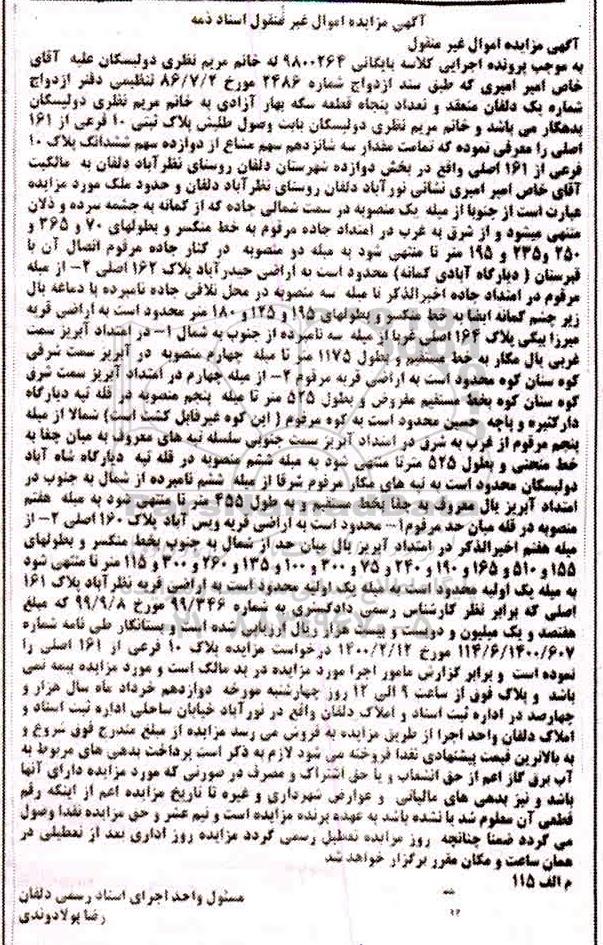 آگهی مزایده اموال غیر منقول اسناد ذمه
آگهی مزایده اموال غیر منقول
به موجب پرونده اجرایی کلاسه بایگانی ۹۸۰۰۲۶۴ له خانم مریم نظری دولیسکان علیه آقای
خاص امیر امیری که طبق سند ازدواج شماره ۲۴۸۶ مورخ ۸۶/۷/۲ تنظیمی دفتر ازدواج
شماره یک دلفان منعقد و تعداد پنجاه قطعه سکه بهار آزادی به خانم مریم نظری دولیسکان
بدهکار می باشد و خانم مریم نظری دولیسکان بابت وصول طلبش پلاک ثبتی ۱۰ فرعی از ۱۶۱
اصلی را معرفی نموده که تمامت مقدار سه شانزدهم سهم مشاع از دوازده سهم ششدانگ پلاک ۱۰
فرعی از ۱۶۱ اصلی واقع در بخش دوازده شهرستان دلفان روستای نظرآباد دلفان به مالکیت
آقای خاص امیر امیری نشانی نورآباد دلفان روستای نظرآباد دلفان و حدود ملک مورد مزایده
عبارت است از جنوبا از میله یک منصوبه در سمت شمالی جاده که از کمانه به چشمه سرده و ذلان
منتهی میشود و از شرق به غرب در امتداد جاده مرقوم به خط منکسر و بطولهای ۷۰ و ۳۶۵ و
۲۵۰ و ۲۳۵ و ۱۹۵ متر تا منتهی شود به میله دو منصوبه در کنار جاده مرقوم اتصال آن با
قبرستان ( دیارگاه آبادی کمانه) محدود است به اراضی حیدرآباد پلاک ۱۶۲ اصلی ۲- از میله
مرقوم در امتداد جاده اخیرالذکر تا میله سه منصوبه در محل تلاقی جاده نامبرده با دماغه یال
زیر چشم کمانه ایضا به خط منکسر و بطولهای ۱۹۵ و ۱۲۵ و ۱۸۰ متر محدود است به اراضی قریه
میرزا بیگی پلاک ۱۶۴ اصلی غربا از میله سه نامبرده از جنوب به شمال ۱- در امتداد آبریز سمت
غربی یال مکار به خط مستقیم و بطول ۱۱۷۵ متر تا میله چهارم منصوبه در آبریز سمت شرقی
کوه سنان کوه محدود است به اراضی قریه مرقوم ۲- از میله چهارم در امتداد آبریز سمت شرق
کوه سنان کوه بخط مستقیم مفروض و بطول ۵۲۵ متر تا میله پنجم منصوبه در قله تپه دیارگاه
دارکتیره و پاچه حسین محدود است به کوه مرقوم ( این کوه غیرقابل کشت است) شمالا از میله
پنجم مرقوم از غرب به شرق در امتداد آبریز سمت جنوبی سلسله تپه های معروف به میان چقا به
خط منحنی و بطول ۵۲۵ مترتا منتهی شود به میله ششم منصوبه در قله تپه دیارگاه شاه آباد
دولیسکان محدود است به تپه های مکار مرقوم شرقا از میله ششم نامبرده از شمال به جنوب در
امتداد آبریز یال معروف و چقا بخط مستقیم و به طول ۴۵۵ متر تا منتهی شود به میله هفتم
منصوبه در قله میان حد مرقوم۱- محدود است به اراضی قریه ویس آباد پلاک ۱۶۰ اصلی ۲- از
میله هفتم اخیرالذکر در امتداد آبریز یال میان حد از شمال به جنوب بخط منکسر و بطولهای
۱۵۵ و ۵۱۰ و ۱۶۵ و ۱۹۰ و ۲۴۰ و ۷۵ و ۳۰۰ و ۱۰۰ و ۱۳۵ و ۲۶۰ و ۳۰۰ و ۱۱۵ متر تا منتهی شود
به میله یک اولیه محدود است به میله یک اولیه محدود است به اراضی قریه نظرآباد پلاک ۱۶۱
اصلی که برابر نظر کارشناس رسمی دادگستری به شماره ۹۹/۳۴۶ مورخ ۹۹/۹/۸ که مبلغ
هفتصد و یک میلیون و دویست و بیست هزار ریال ارزیابی شده است و بستانکار طی نامه شماره
۱۱۴/۶/۱۴۰۰/۶۰۷ مورخ ۱۴۰۰/۲/۱۲ درخواست مزایده پلاک ۱۰ فرعی از ۱۶۱ اصلی را
نموده است و برابر گزارش مامور اجرا مورد مزایده در ید مالک است و مورد مزایده بیمه نمی
باشد و پلاک فوق از ساعت ۹ الی ۱۲ روز چهارشنبه مورخه دوازدهم خرداد ماه سال هزار و
چهارصد در اداره ثبت اسناد و املاک دلفان واقع در نورآباد خیابان ساحلی اداره ثبت اسناد و
املاک دلفان واحد اجرا از طریق مزایده به فروش می رسد مزایده از مبلغ مندرج فوق شروع و
به بالاترین قیمت پیشنهادی نقدا فروخته می شود لازم به ذکر است پرداخت بدهی های مربوط به
آب برق گاز اعم از حق انشعاب و یا حق اشتراک و مصرف در صورتی که مورد مزایده دارای آنها
باشد و نیز بدهی های مالیاتی و عوارض شهرداری و غیره تا تاریخ مزایده اعم از اینکه رقم
قطعی آن معلوم شد یا نشده باشد به عهده برنده مزایده است و نیم عشر و حق مزایده نقدا وصول
می گردد ضمنا چنانچه روز مزایده تعطیل رسمی گردد مزایده روز اداری بعد از تعطیلی در
همان ساعت و مکان مقرر برگزار خواهد شد
م الف ۱۱۵
مسئول واحد اجرای اسناد رسمی دلفان
رضا پولادوندی